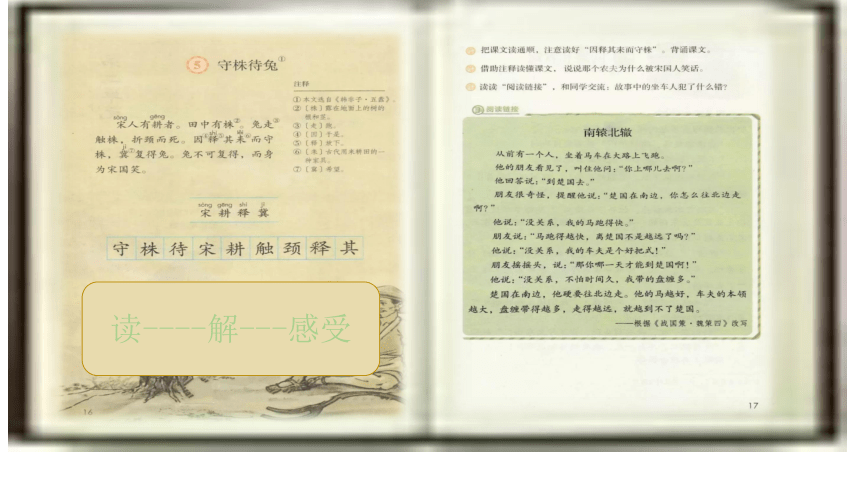 5 守株待兔①
注释
①本文选自《韩非子·五蠹》。
②〔株〕露在地面上的树的
根和茎。
③〔走〕跑。
④〔因〕于是。
⑤〔释〕放下。
⑥〔耒〕古代用来耕田的一
种农具。
⑦〔冀〕希望。
sòng gēng
宋人有耕者。田中有株②。兔走③
触株，折颈而死。因④释⑤其耒⑥而守
株，冀⑦复得兔。兔不可复得，而身
为宋国笑。
sòng gēng shì jì
宋 耕 释 冀
守 株 待 宋 耕 触 颈 释 其
读----解---感受
16
把课文读通顺，注意读好“因释其耒而守株”。背诵课文。
借助注释读懂课文，说说那个农夫为什么被宋国人笑话。
读读“阅读链接”，和同学交流：故事中的坐车人犯了什么错？
阅读链接
南辕北辙
从前有一个人，坐着马车在大路上飞跑。
他的朋友看见了，叫住他问：“你上哪儿去啊？”
他回答说：“到楚国去。”
朋友很奇怪，提醒他说：“楚国在南边，你怎么往北边走
啊？”
他说：“没关系，我的马跑得快。”
朋友说：“马跑得越快，离楚国不是越远了吗？”
他说：“没关系，我的车夫是个好把式！”
朋友摇摇头，说：“那你哪一天才能到楚国啊！”
他说：“没关系，不怕时间久，我带的盘缠多。”
楚国在南边，他硬要往北边走。他的马越好，车夫的本领
越大，盘缠带得越多，走得越远，就越到不了楚国。
——根据《战国策·魏策四》改写
17